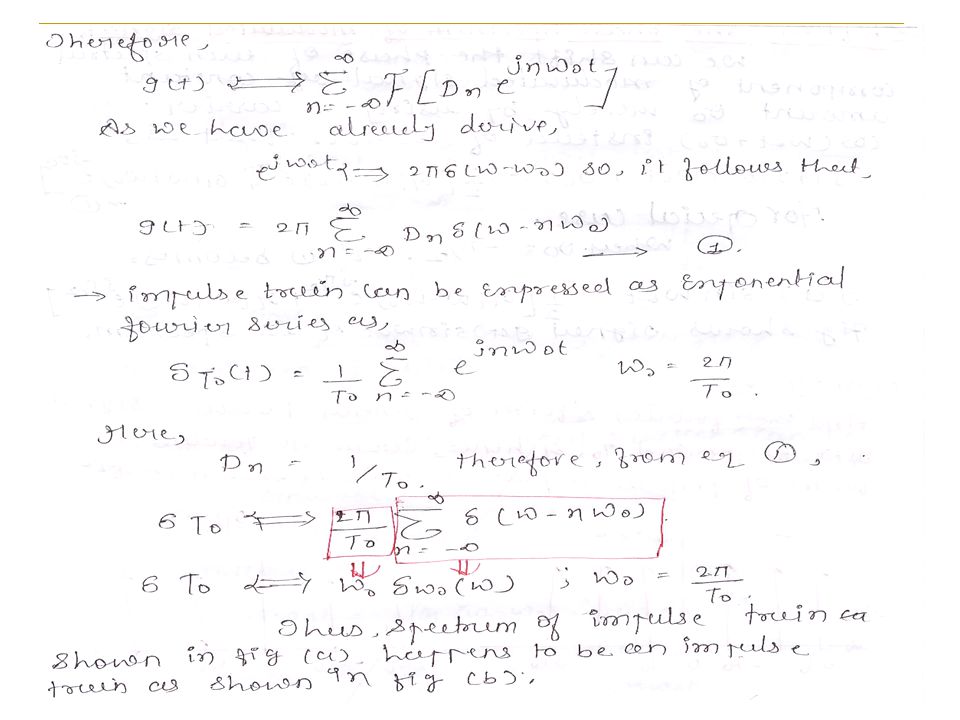 Therefore,
g(t) ⟺ ∞∑n=-∞ F [ Dn e^jnω0t ]
As we have already derive,
e^jω0t ⟺ 2πδ(ω-ω0) so, it follows that,
g(t) = 2π ∞∑n=-∞ Dn δ(ω-nω0) ⟶ ①.
→ impulse train can be expressed as exponential
fourier series as,
δT0(t) = 1/T0 ∞∑n=-∞ e^jnω0t ω0 = 2π/T0.
Here,
Dn = 1/T0. therefore, from eq ①,
δT0 ⟺ 2π/T0 ∞∑n=-∞ δ(ω-nω0)
δT0 ⟺ ω0 δω0(ω) ; ω0 = 2π/T0.
Thus, spectrum of impulse train as
shown in fig (a) happens to be an impulse
train as shown in fig (b).